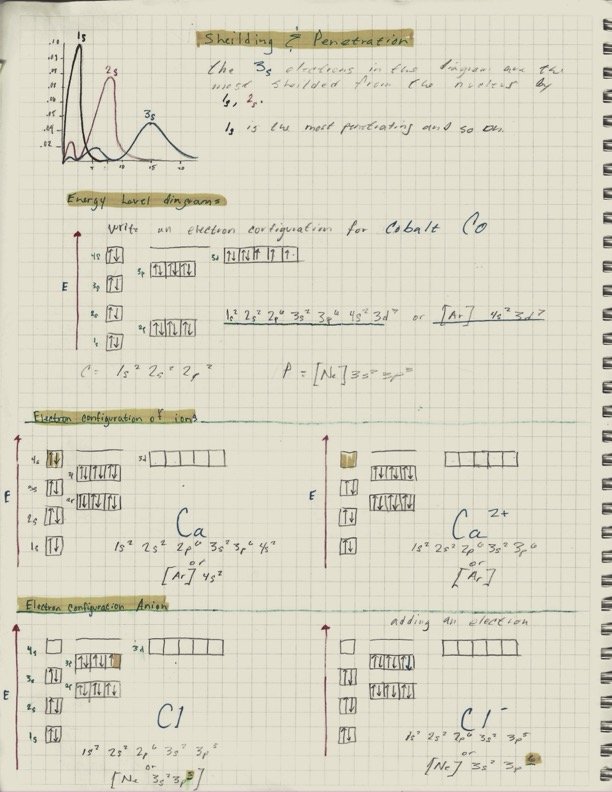 Sheilding & Penetration
1s
2s
3s
.02
5
10
15
20
The 3s electrons in the diagram are the
most sheilded from the nucleus by
1s, 2s.
1s is the most penetrating and so on.
Energy Level diagrams
Write an electron configuration for Cobalt Co
E
4s 3d
3p
3p
2s
2p
1s
1s² 2s² 2p⁶ 3s² 3p⁶ 4s² 3d⁷ or [Ar] 4s² 3d⁷
C= 1s² 2s² 2p² P = [Ne] 3s² 3p³
Electron configuration of ions
E
4s 3d
3s
2s
1s
Ca
1s² 2s² 2p⁶ 3s² 3p⁶ 4s²
or
[Ar] 4s²
E
Ca²⁺
1s² 2s² 2p⁶ 3s² 3p⁶
or
[Ar]
Electron configuration Anion
adding an electron
E
4s 3d
3p
3s
2p
2s
1s
Cl
1s² 2s² 2p⁶ 3s² 3p⁵
or
[Ne 3s² 3p⁵]
Cl⁻
1s² 2s² 2p⁶ 3s² 3p⁵
or
[Ne] 3s² 3p⁶